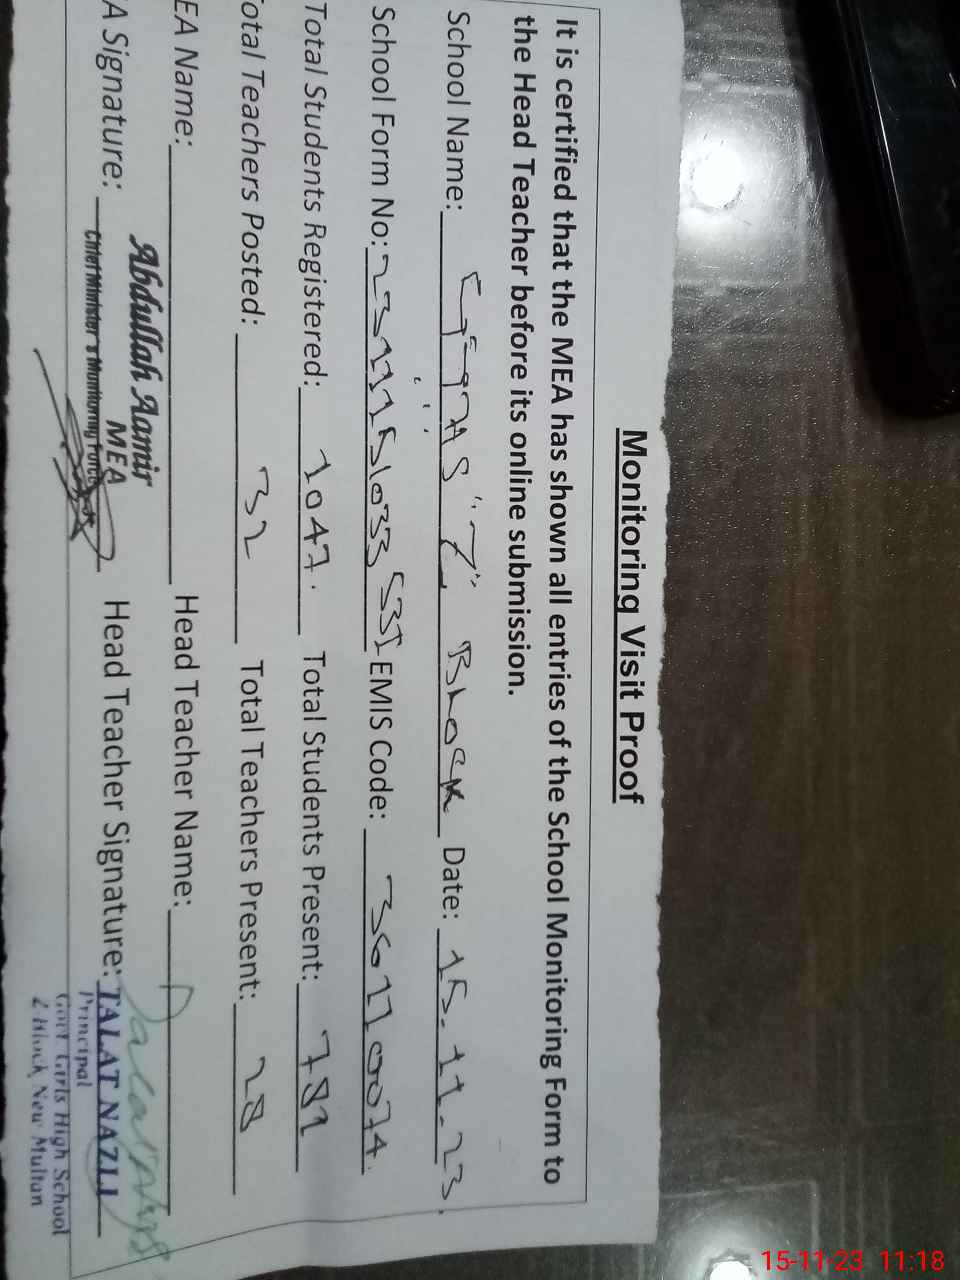 Monitoring Visit Proof
It is certified that the MEA has shown all entries of the School Monitoring Form to
the Head Teacher before its online submission.
School Name: "Z" Block Date: 15.11.23.
School Form No: EMIS Code: 36110074.
Total Students Registered: 1047. Total Students Present: 781
otal Teachers Posted: 32 Total Teachers Present: 28
EA Name: Head Teacher Name:
Abdullah Aamir
MEA
A Signature: Head Teacher Signature: TALAT NAZLI
Chief Minister's Monitoring Force
Principal
Govt Girls High School
Z Block New Multan
15-11-23 11:18